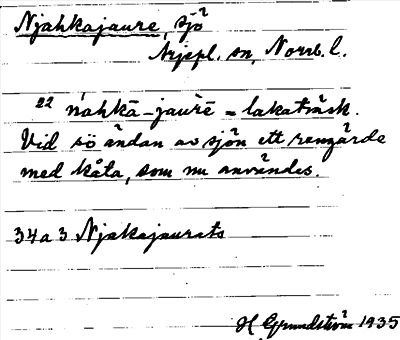 Njahkajaure, sjö
Arjepl. sn, Norrb. l.
22 ńahkā-jaurē = lakaträsk.
Vid sö ändan av sjön ett rengärde
med kåta, som nu användes.
34a3 Njakajaurats
H Grundström 1935